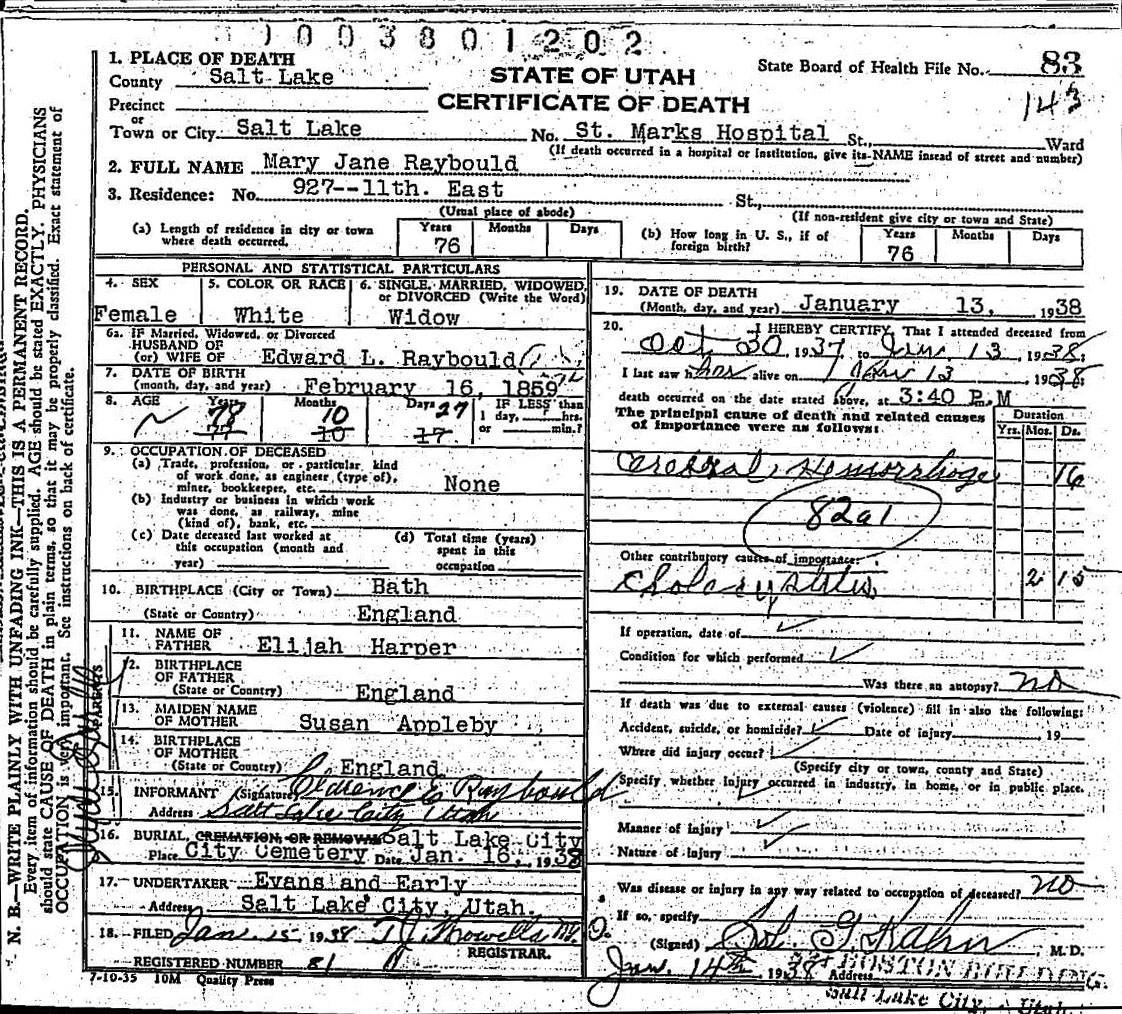 1003801202
1. PLACE OF DEATH
County Salt Lake
STATE OF UTAH
State Board of Health File No. 83
Precinct
CERTIFICATE OF DEATH
143
or
Town or City Salt Lake No. St. Marks Hospital St., Ward
(If death occurred in a hospital or institution, give its NAME insead of street and number)
2. FULL NAME Mary Jane Raybould
3. Residence: No. 927--11th. East St.,
(Usual place of abode) (If non-resident give city or town and State)
(a) Length of residence in city or town where death occurred. Years 76 Months Days
(b) How long in U. S., if of foreign birth? Years 76 Months Days
PERSONAL AND STATISTICAL PARTICULARS
4. SEX Female
5. COLOR OR RACE White
6. SINGLE, MARRIED, WIDOWED, or DIVORCED (Write the Word) Widow
6a. IF Married, Widowed, or Divorced
HUSBAND OF
(or) WIFE OF Edward L. Raybould
7. DATE OF BIRTH
(month, day, and year) February 16, 1859
8. AGE Years Months Days IF LESS than
78 10 27 1 day, hrs.
77 10 17 or min.?
9. OCCUPATION OF DECEASED
(a) Trade, profession, or particular kind
of work done, as engineer (type of),
miner, bookkeeper, etc. None
(b) Industry or business in which work
was done, as railway, mine
(kind of), bank, etc.
(c) Date deceased last worked at
this occupation (month and
year)
(d) Total time (years)
spent in this
occupation
10. BIRTHPLACE (City or Town) Bath
(State or Country) England
PARENTS
11. NAME OF
FATHER Elijah Harper
12. BIRTHPLACE
OF FATHER
(State or Country) England
13. MAIDEN NAME
OF MOTHER Susan Appleby
14. BIRTHPLACE
OF MOTHER
(State or Country) England
15. INFORMANT (Signature) Clarence E Raybould
Address Salt Lake City Utah
16. BURIAL, CREMATION, OR REMOVAL Salt Lake City
Place City Cemetery Date Jan. 16, 1938
17. UNDERTAKER Evans and Early
Address Salt Lake City, Utah.
18. FILED Jan. 15 1938 T J Howells MD.
REGISTRAR.
REGISTERED NUMBER 81
7-10-35 10M Quality Press
19. DATE OF DEATH
(Month, day, and year) January 13, 1938
20. I HEREBY CERTIFY, That I attended deceased from
Oct 30 1937, to Jan. 13, 1938;
I last saw her alive on Jan 13, 1938
death occurred on the date stated above, at 3:40 P.M
The principal cause of death and related causes
of importance were as follows:
Duration
Yrs. Mos. Ds.
Cerebral Hemorrhage 16
82a1
Other contributory causes of importance:
Cholecystitis 2 15
If operation, date of
Condition for which performed
Was there an autopsy? no
If death was due to external causes (violence) fill in also the following:
Accident, suicide, or homicide? Date of injury 19
Where did injury occur?
(Specify city or town, county and State)
Specify whether injury occurred in industry, in home, or in public place.
Manner of injury
Nature of injury
Was disease or injury in any way related to occupation of deceased? no
If so, specify
(Signed) Sol. G Kahn, M. D.
Jan. 14th 1938 Address BOSTON BUILDING.
Salt Lake City, Utah
N. B.—WRITE PLAINLY WITH UNFADING INK—THIS IS A PERMANENT RECORD.
Every item of information should be carefully supplied. AGE should be stated EXACTLY. PHYSICIANS
should state CAUSE OF DEATH in plain terms, so that it may be properly classified. Exact statement of
OCCUPATION is very important. See instructions on back of certificate.